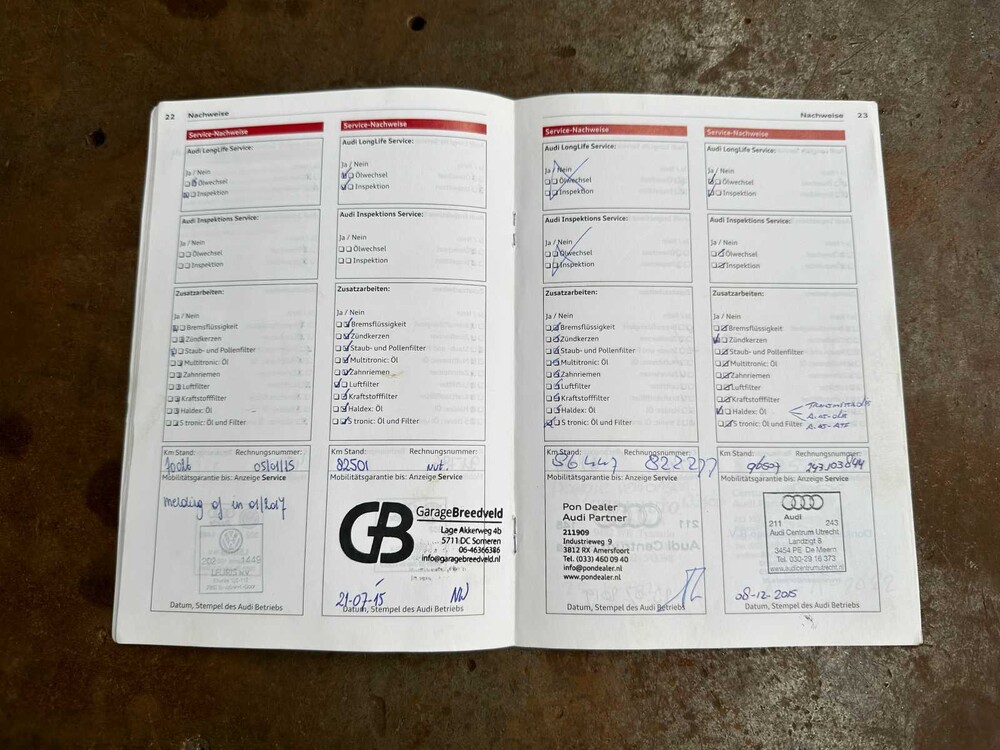 22 Nachweise
Service-Nachweise
Audi LongLife Service:
Ja / Nein
Ölwechsel
Inspektion
Audi Inspektions Service:
Ja / Nein
Ölwechsel
Inspektion
Zusatzarbeiten:
Ja / Nein
Bremsflüssigkeit
Zündkerzen
Staub- und Pollenfilter
Multitronic: Öl
Zahnriemen
Luftfilter
Kraftstofffilter
Haldex: Öl
S tronic: Öl und Filter
Km Stand: Rechnungsnummer:
05/01/15
Mobilitätsgarantie bis: Anzeige Service
melding of in 01/2017
202 1449
LEURIS N.V.
Datum, Stempel des Audi Betriebs
Service-Nachweise
Audi LongLife Service:
Ja / Nein
Ölwechsel
Inspektion
Audi Inspektions Service:
Ja / Nein
Ölwechsel
Inspektion
Zusatzarbeiten:
Ja / Nein
Bremsflüssigkeit
Zündkerzen
Staub- und Pollenfilter
Multitronic: Öl
Zahnriemen
Luftfilter
Kraftstofffilter
Haldex: Öl
S tronic: Öl und Filter
Km Stand: Rechnungsnummer:
82501 nvt.
Mobilitätsgarantie bis: Anzeige Service
GB GarageBreedveld
Lage Akkerweg 4b
5711 DC Someren
06-46366386
info@garagebreedveld.nl
21-07-15
Datum, Stempel des Audi Betriebs
Nachweise 23
Service-Nachweise
Audi LongLife Service:
Ja / Nein
Ölwechsel
Inspektion
Audi Inspektions Service:
Ja / Nein
Ölwechsel
Inspektion
Zusatzarbeiten:
Ja / Nein
Bremsflüssigkeit
Zündkerzen
Staub- und Pollenfilter
Multitronic: Öl
Zahnriemen
Luftfilter
Kraftstofffilter
Haldex: Öl
S tronic: Öl und Filter
Km Stand: Rechnungsnummer:
86447 822277
Mobilitätsgarantie bis: Anzeige Service
Pon Dealer
Audi Partner
211909
Industrieweg 9
3812 RX Amersfoort
Tel. (033) 460 09 40
info@pondealer.nl
www.pondealer.nl
Datum, Stempel des Audi Betriebs
Service-Nachweise
Audi LongLife Service:
Ja / Nein
Ölwechsel
Inspektion
Audi Inspektions Service:
Ja / Nein
Ölwechsel
Inspektion
Zusatzarbeiten:
Ja / Nein
Bremsflüssigkeit
Zündkerzen
Staub- und Pollenfilter
Multitronic: Öl
Zahnriemen
Luftfilter
Kraftstofffilter
Haldex: Öl
S tronic: Öl und Filter
Km Stand: Rechnungsnummer:
96507 243.103844
Mobilitätsgarantie bis: Anzeige Service
Audi
211 243
Audi Centrum Utrecht
Landzigt 8
3454 PE De Meern
Tel. 030-29 16 373
www.audicentrumutrecht.nl
08-12-2015
Datum, Stempel des Audi Betriebs